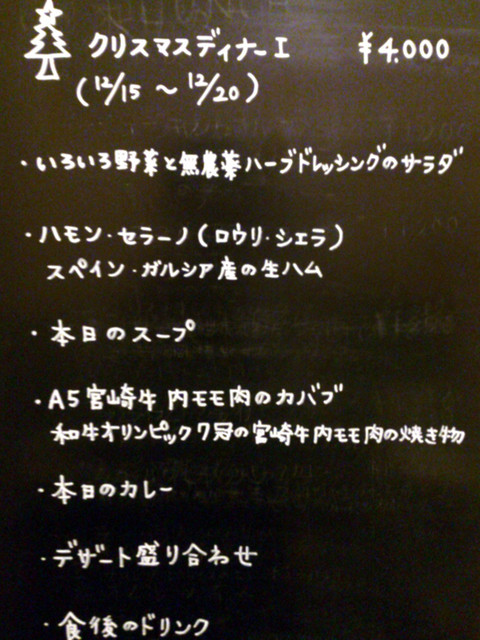 クリスマスディナーⅠ ¥4,000
(12/15 ～ 12/20)
・いろいろ野菜と無農薬ハーブドレッシングのサラダ
・ハモン・セラーノ(ロウリ・シェラ)
スペイン・ガルシア産の生ハム
・本日のスープ
・A5宮崎牛 内モモ肉のカバブ
和牛オリンピック7冠の宮崎牛内モモ肉の焼き物
・本日のカレー
・デザート盛り合わせ
・食後のドリンク